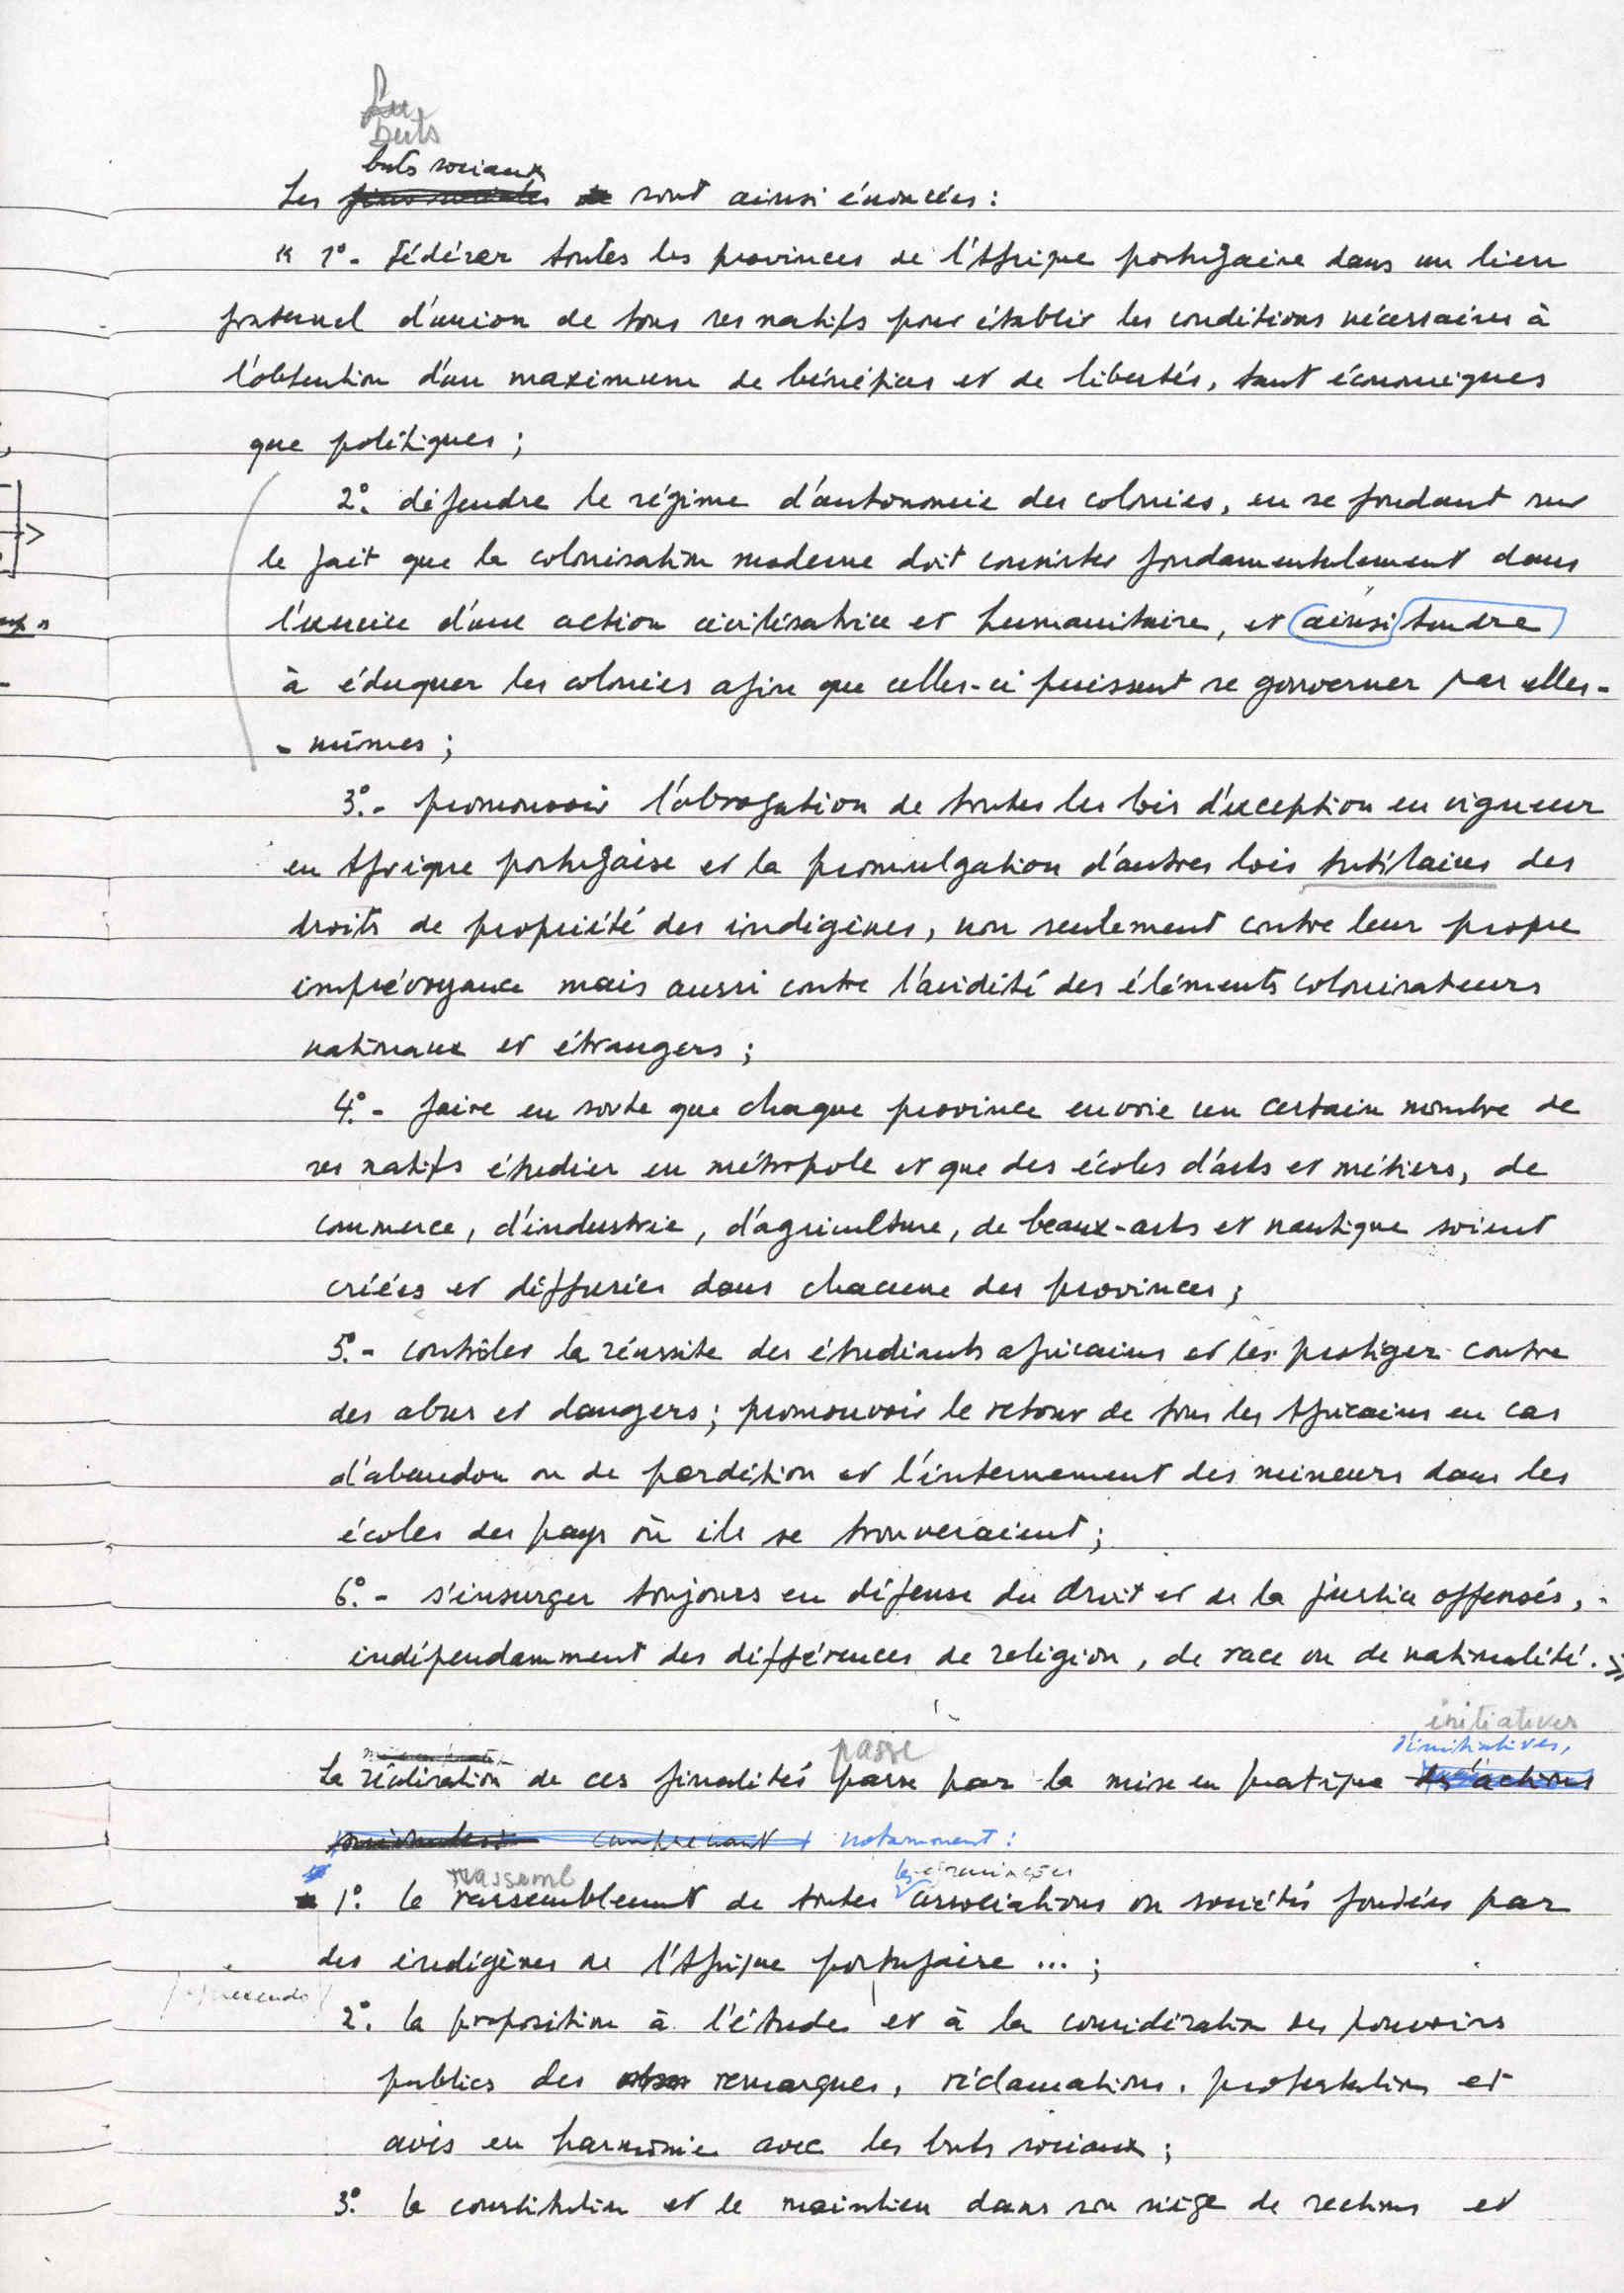 buts
buts sociaux
Les fins sociales sont ainsi énoncées :
" 1º - Fédérer toutes les provinces de l'Afrique portugaise dans un lien
fraternel d'union de tous ses natifs pour établir les conditions nécessaires à
l'obtention d'un maximum de bénéfices et de libertés, tant économiques
que politiques ;
2º. défendre le régime d'autonomie des colonies, en se fondant sur
le fait que la colonisation moderne doit consister fondamentalement dans
l'exercice d'une action civilisatrice et humanitaire, et ainsi tendre
à éduquer les colonies afin que celles-ci puissent se gouverner par elles-
- mêmes ;
3º. - promouvoir l'abrogation de toutes les lois d'exception en vigueur
en Afrique portugaise et la promulgation d'autres lois tutélaires des
droits de propriété des indigènes, non seulement contre leur propre
imprévoyance mais aussi contre l'avidité des éléments colonisateurs
nationaux et étrangers ;
4º - faire en sorte que chaque province envoie un certain nombre de
ses natifs étudier en métropole et que des écoles d'arts et métiers, de
commerce, d'industrie, d'agriculture, de beaux-arts et nautique soient
créées et diffusées dans chacune des provinces ;
5º. - contrôler la réussite des étudiants africains et les protéger contre
des abus et dangers ; promouvoir le retour de tous les Africains en cas
d'abandon ou de perdition et l'internement des mineurs dans les
écoles des pays où ils se trouveraient ;
6º. - s'insurger toujours en défense du droit et de la justice offensés, -
indépendamment des différences de religion, de race ou de nationalité. »
initiatives
passe d'initiatives,
La réalisation de ces finalités passe par la mise en pratique des actions
comprenant notamment :
rassemb les
1º. le rassemblement de toutes associations ou sociétés fondées par
des indigènes de l'Afrique portugaise ... ;
2º. la proposition à l'étude et à la considération des pouvoirs
publics des remarques, réclamations, protestations et
avis en harmonie avec les buts sociaux ;
3º. la constitution et le maintien dans son siège de sections et